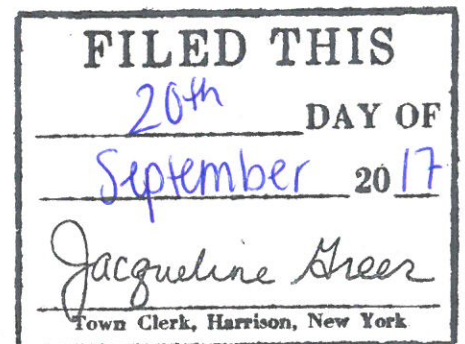 FILED THIS
20th DAY OF
September 2017
Jacqueline Greer
Town Clerk, Harrison, New York